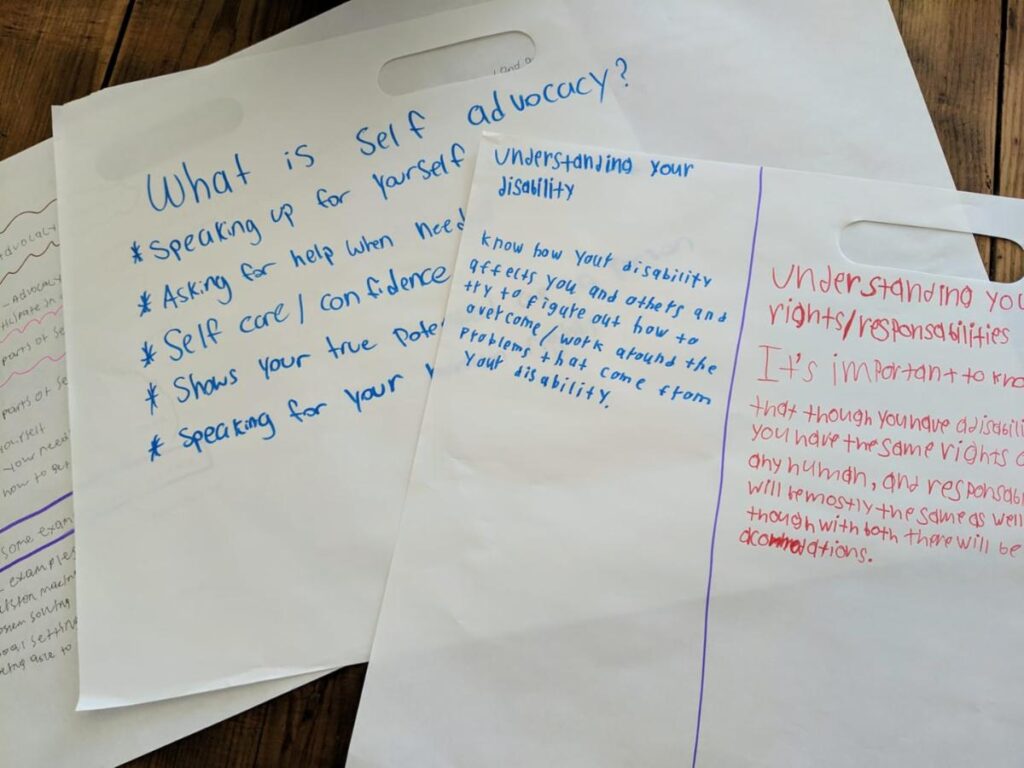 What is self advocacy?
* Speaking up for yourself
* Asking for help when need
* Self care / confidence
* Shows your true Pote
* Speaking for your
understanding your
disability
know how your disability
affects you and others and
try to figure out how to
overcome / work around the
problems that come from
your disability.
understanding you
rights/responsabilities
It's important to kno
that though you have a disabili
you have the same rights
any human, and responsab
will be mostly the same as well
though with both there will be
dvocacy
Advocacy
parts of se
parts of se
yourself
your need
how to get
some exam
examples
problem solving
goal settin
being able to
and a